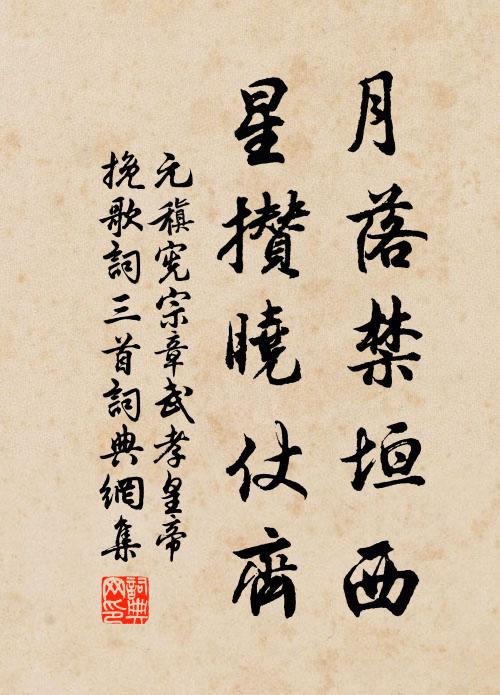 月落禁垣西
星攅曉仗齊
元稹宪宗章武孝皇帝
挽歌詞三首詞典網集
詞典
网印